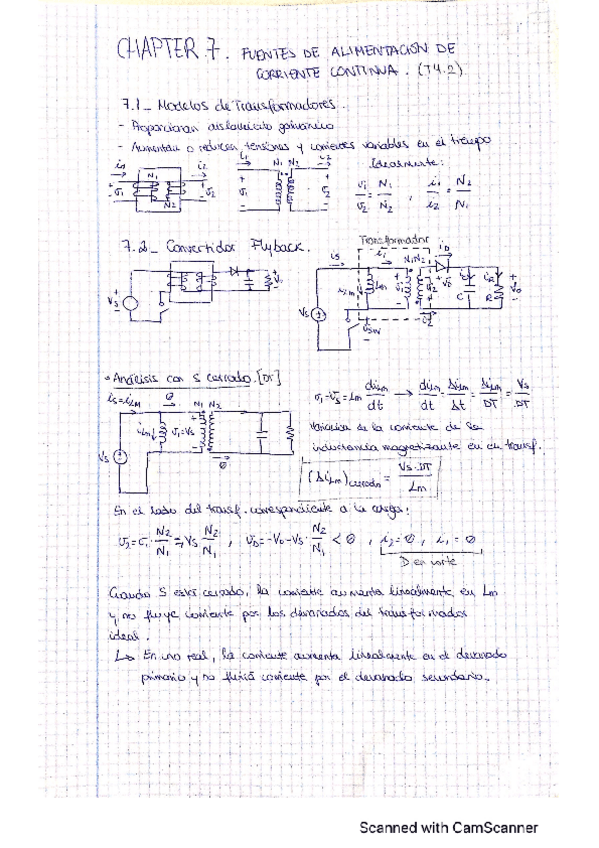 CHAPTER 7. FUENTES DE ALIMENTACIÓN DE
CORRIENTE CONTINUA. (T4.2)
7.1_ Modelos de Transformadores.
- Proporcionan aislamiento galvánico
- Aumentan o reducen tensiones y corrientes variables en el tiempo
i1 i2 i1 N1 N2 i2 Idealmente:
N1 N2 v1 v2 v1 v2
v1/v2 = N1/N2 , i1/i2 = N2/N1
7.2_ Convertidor Flyback.
Transformador
is i1 N1 N2 iD
Vs iLm Lm v1 v2 C R Vo
Vs vsw
• Análisis con S cerrado. [DT]
is=iLm 0 N1 N2
iLm v1=Vs
Vs 0
v1=Vs=Lm diLm/dt → diLm/dt = ΔiLm/Δt = ΔiLm/DT = Vs/DT
Variación de la corriente de la
inductancia magnetizante en el transf.
(ΔiLm)cerrado = Vs·DT/Lm
En el lado del transf. correspondiente a la carga:
v2=v1·N2/N1=Vs N2/N1 , vD=-Vo-Vs·N2/N1 < 0 , i2=0 , i1=0
D en corte
Cuando S está cerrado, la corriente aumenta linealmente en Lm
y no fluye corriente por los devanados del transformador
ideal.
↳ En uno real, la corriente aumenta linealmente en el devanado
primario y no fluirá corriente por el devanado secundario.
Scanned with CamScanner